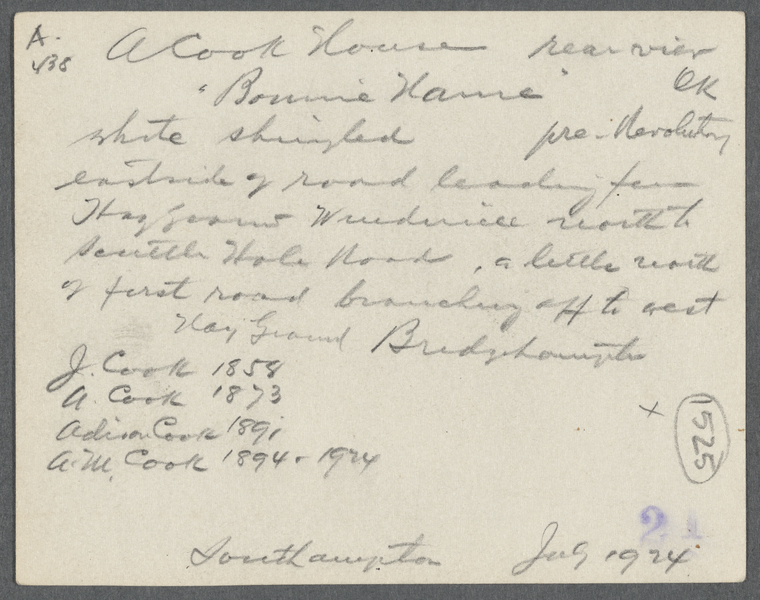 A.
438
A Cook House rear view
"Bonnie Hame" OK
white shingled pre-Revolutory
east side of road leading from
Hay Ground Windmill north to
Scuttle Hole Road, a little north
of first road branching off to west
Hay Ground Bridgehampton
J. Cook 1858
A. Cook 1873
Adison Cook 1891
A. M. Cook 1894 - 1924
x
1525
21
Southampton July 1924